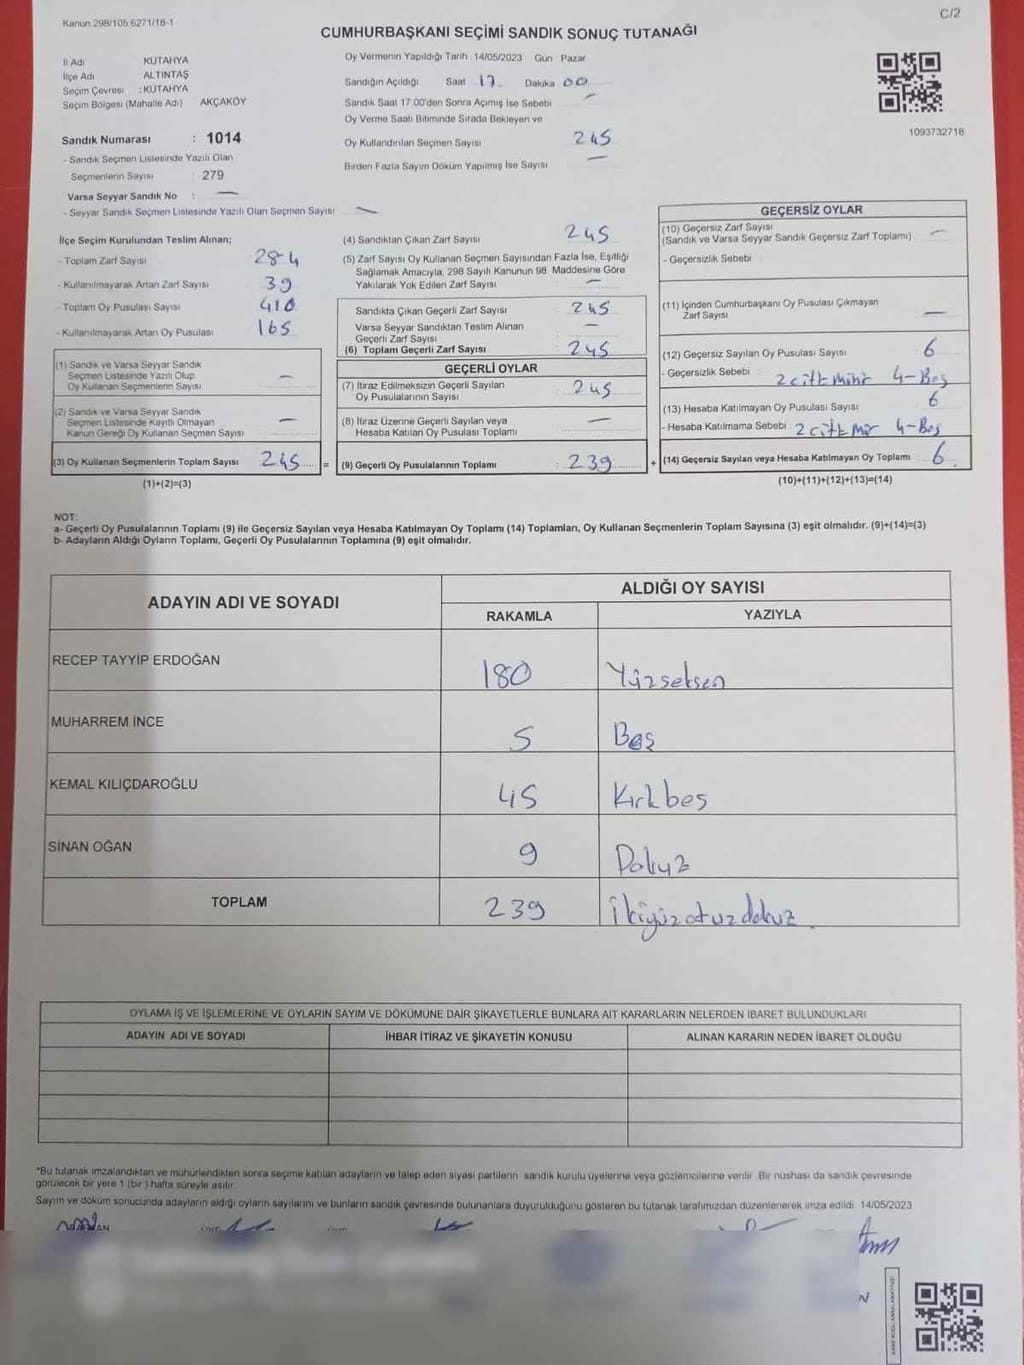 Kanun.298/105.6271/18-1
C/2
CUMHURBAŞKANI SEÇİMİ SANDIK SONUÇ TUTANAĞI
İl Adı KÜTAHYA
İlçe Adı ALTINTAŞ
Seçim Çevresi : KÜTAHYA
Seçim Bölgesi (Mahalle Adı) AKÇAKÖY
Sandık Numarası : 1014
- Sandık Seçmen Listesinde Yazılı Olan
Seçmenlerin Sayısı : 279
Varsa Seyyar Sandık No : —
- Seyyar Sandık Seçmen Listesinde Yazılı Olan Seçmen Sayısı —
Oy Vermenin Yapıldığı Tarih 14/05/2023 Gün Pazar
Sandığın Açıldığı Saat 17 Dakika 00
Sandık Saat 17 00'den Sonra Açımış İse Sebebi —
Oy Verme Saati Bitiminde Sırada Bekleyen ve
Oy Kullandırılan Seçmen Sayısı 245
Birden Fazla Sayım Döküm Yapılmış İse Sayısı —
1093732718
İlçe Seçim Kurulundan Teslim Alınan;
- Toplam Zarf Sayısı 284
- Kullanılmayarak Artan Zarf Sayısı 39
- Toplam Oy Pusulası Sayısı 410
- Kullanılmayarak Artan Oy Pusulası 165
(1) Sandık ve Varsa Seyyar Sandık
Seçmen Listesinde Yazılı Olup
Oy Kullanan Seçmenlerin Sayısı —
(2) Sandık ve Varsa Seyyar Sandık
Seçmen Listesinde Kayıtlı Olmayan
Kanun Gereği Oy Kullanan Seçmen Sayısı —
(3) Oy Kullanan Seçmenlerin Toplam Sayısı 245 =
(1)+(2)=(3)
(4) Sandıktan Çıkan Zarf Sayısı 245
(5) Zarf Sayısı Oy Kullanan Seçmen Sayısından Fazla İse, Eşitliği
Sağlamak Amacıyla, 298 Sayılı Kanunun 98 Maddesine Göre
Yakılarak Yok Edilen Zarf Sayısı —
Sandıkta Çıkan Geçerli Zarf Sayısı 245
Varsa Seyyar Sandıktan Teslim Alınan
Geçerli Zarf Sayısı —
(6) Toplam Geçerli Zarf Sayısı 245
GEÇERLİ OYLAR
(7) İtiraz Edilmeksizin Geçerli Sayılan
Oy Pusulalarının Sayısı 245
(8) İtiraz Üzerine Geçerli Sayılan veya
Hesaba Katılan Oy Pusulası Toplamı —
(9) Geçerli Oy Pusulalarının Toplamı : 239 +
GEÇERSİZ OYLAR
(10) Geçersiz Zarf Sayısı
(Sandık ve Varsa Seyyar Sandık Geçersiz Zarf Toplamı) —
- Geçersizlik Sebebi
(11) İçinden Cumhurbaşkanı Oy Pusulası Çıkmayan
Zarf Sayısı —
(12) Geçersiz Sayılan Oy Pusulası Sayısı 6
- Geçersizlik Sebebi 2 çift Mühür 4-Boş
(13) Hesaba Katılmayan Oy Pusulası Sayısı 6
- Hesaba Katılmama Sebebi 2 çift 4-Boş
(14) Geçersiz Sayılan veya Hesaba Katılmayan Oy Toplamı 6
(10)+(11)+(12)+(13)=(14)
NOT:
a- Geçerli Oy Pusulalarının Toplamı (9) ile Geçersiz Sayılan veya Hesaba Katılmayan Oy Toplamı (14) Toplamları, Oy Kullanan Seçmenlerin Toplam Sayısına (3) eşit olmalıdır. (9)+(14)=(3)
b- Adayların Aldığı Oyların Toplamı, Geçerli Oy Pusulalarının Toplamına (9) eşit olmalıdır.
ADAYIN ADI VE SOYADI
ALDIĞI OY SAYISI
RAKAMLA YAZIYLA
RECEP TAYYİP ERDOĞAN 180 Yüzseksen
MUHARREM İNCE 5 Beş
KEMAL KILIÇDAROĞLU 45 Kırkbeş
SİNAN OĞAN 9 Dokuz
TOPLAM 239 ikiyüzotuzdokuz
OYLAMA İŞ VE İŞLEMLERİNE VE OYLARIN SAYIM VE DÖKÜMÜNE DAİR ŞİKAYETLERLE BUNLARA AİT KARARLARIN NELERDEN İBARET BULUNDUKLARI
ADAYIN ADI VE SOYADI İHBAR İTİRAZ VE ŞİKAYETİN KONUSU ALINAN KARARIN NEDEN İBARET OLDUĞU
*Bu tutanak imzalandıktan ve mühürlendikten sonra seçime katılan adayların ve talep eden siyasi partilerin sandık kurulu üyelerine veya gözlemcilerine verilir. Bir nüshası da sandık çevresinde
görülecek bir yere 1 (bir) hafta süreyle asılır.
Sayım ve döküm sonucunda adayların aldığı oyların sayılarını ve bunların sandık çevresinde bulunanlara duyurulduğunu gösteren bu tutanak tarafımızdan düzenlenerek imza edildi 14/05/2023